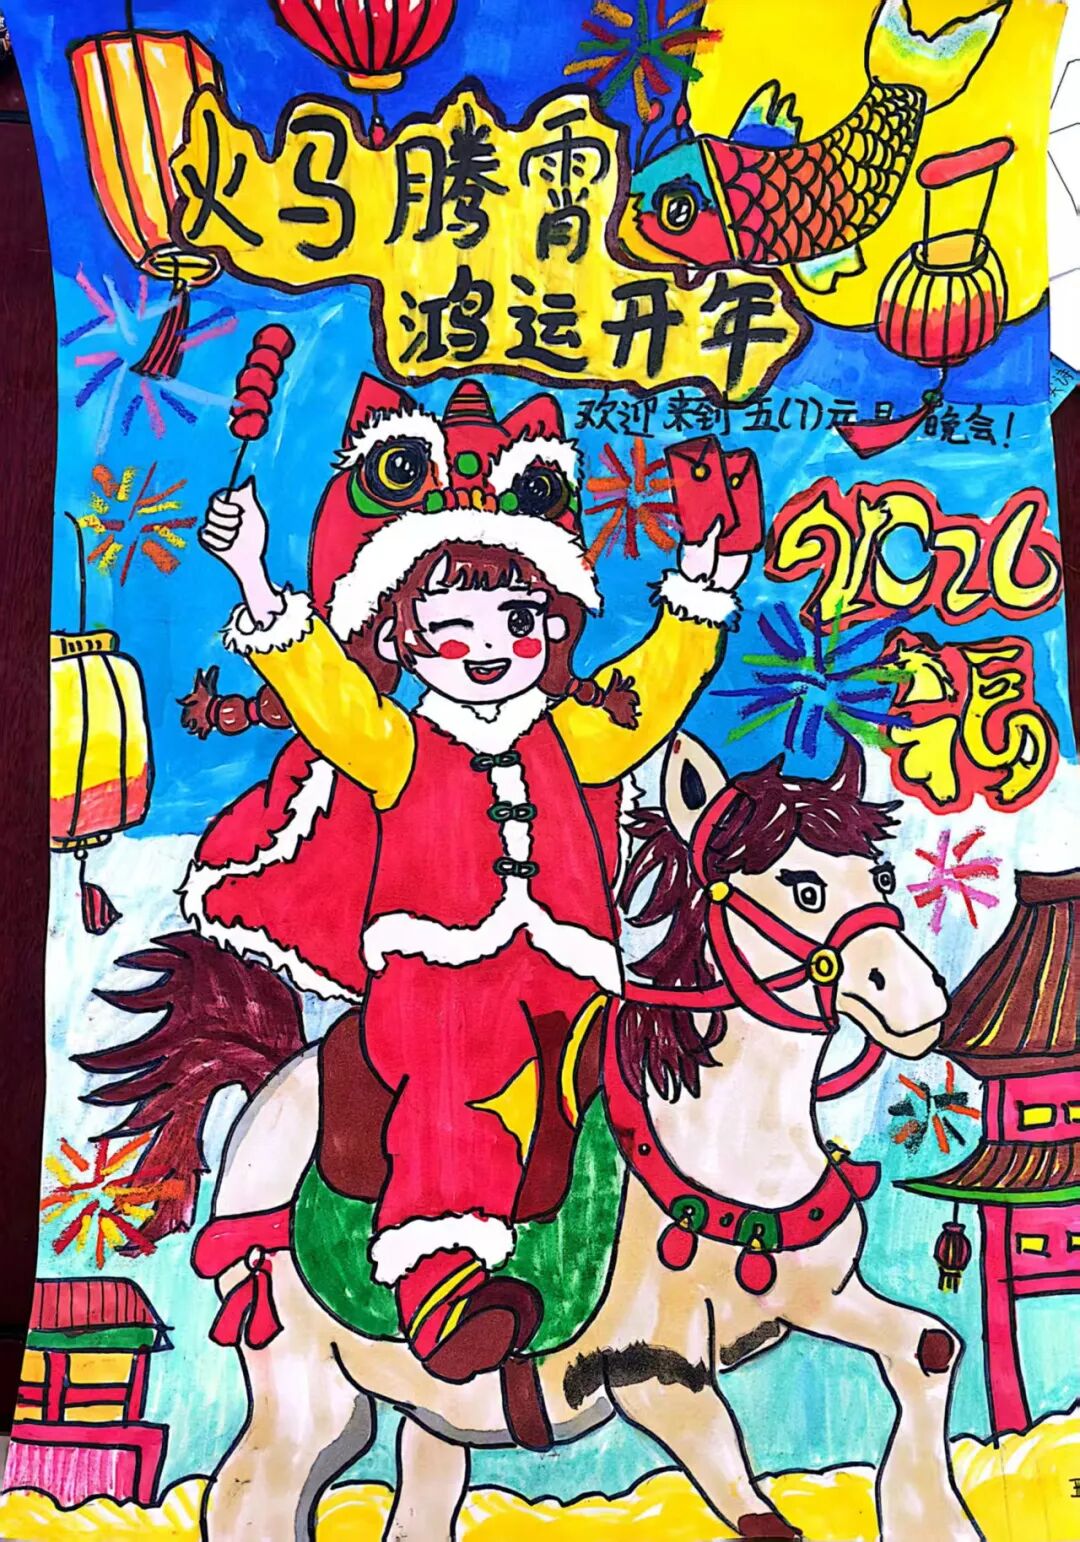 火马腾霄
鸿运开年
欢迎来到五(7)元旦晚会!
2026
福